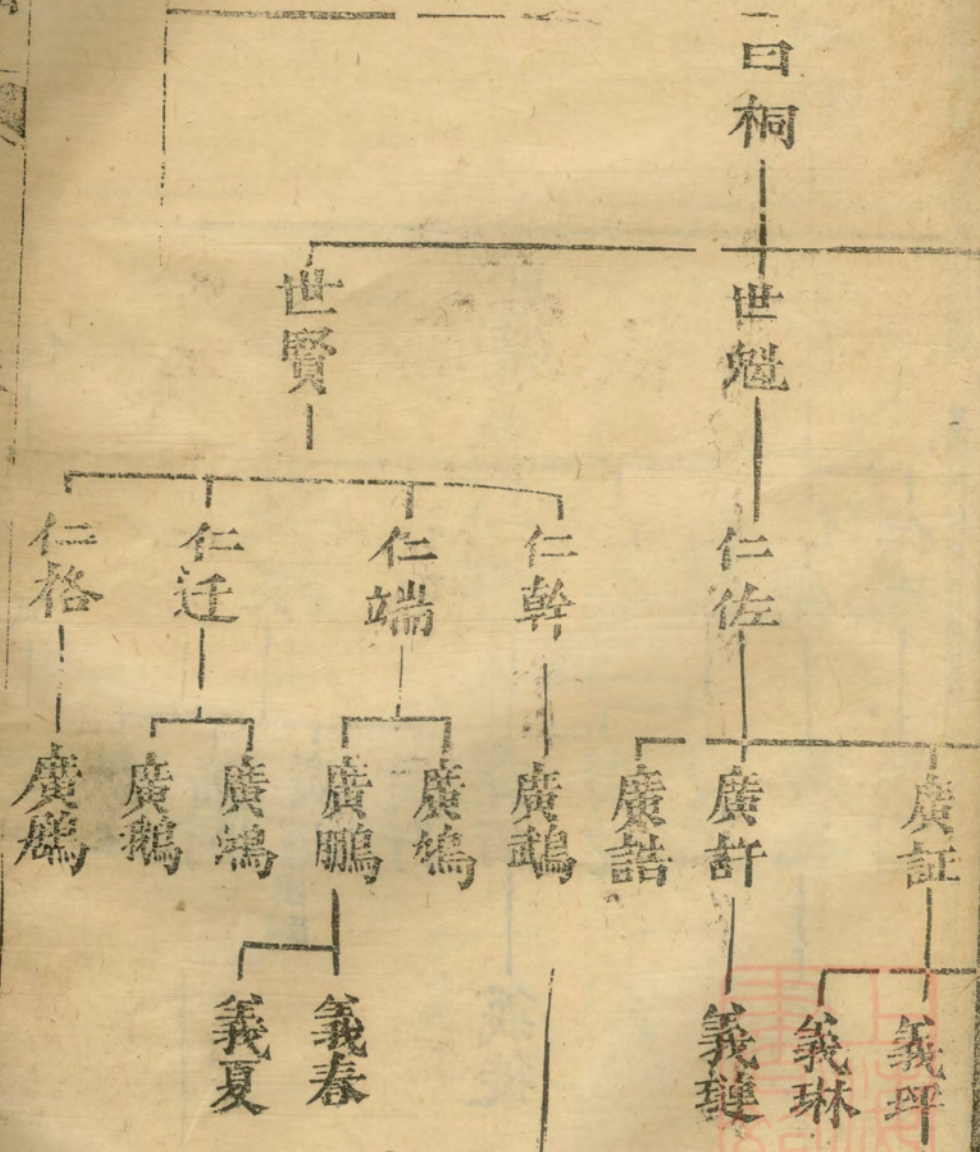 曰桐
世魁
世賢
仁佐
仁幹
仁端
仁迁
仁格
廣証
廣許
廣誥
廣鵡
廣
廣鵬
廣鴻
廣鵝
廣
義
義琳
義璉
義春
義夏